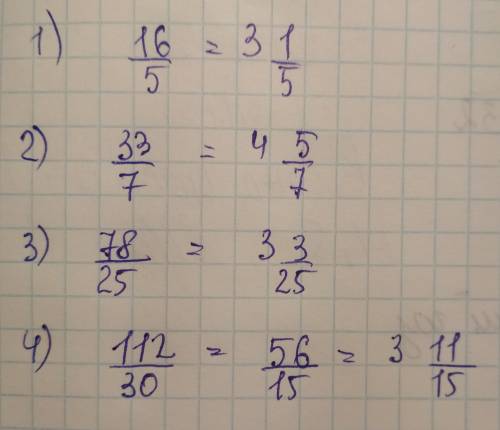 1) 16/5 = 3 1/5
2) 33/7 = 4 5/7
3) 78/25 = 3 3/25
4) 112/30 = 56/15 = 3 11/15